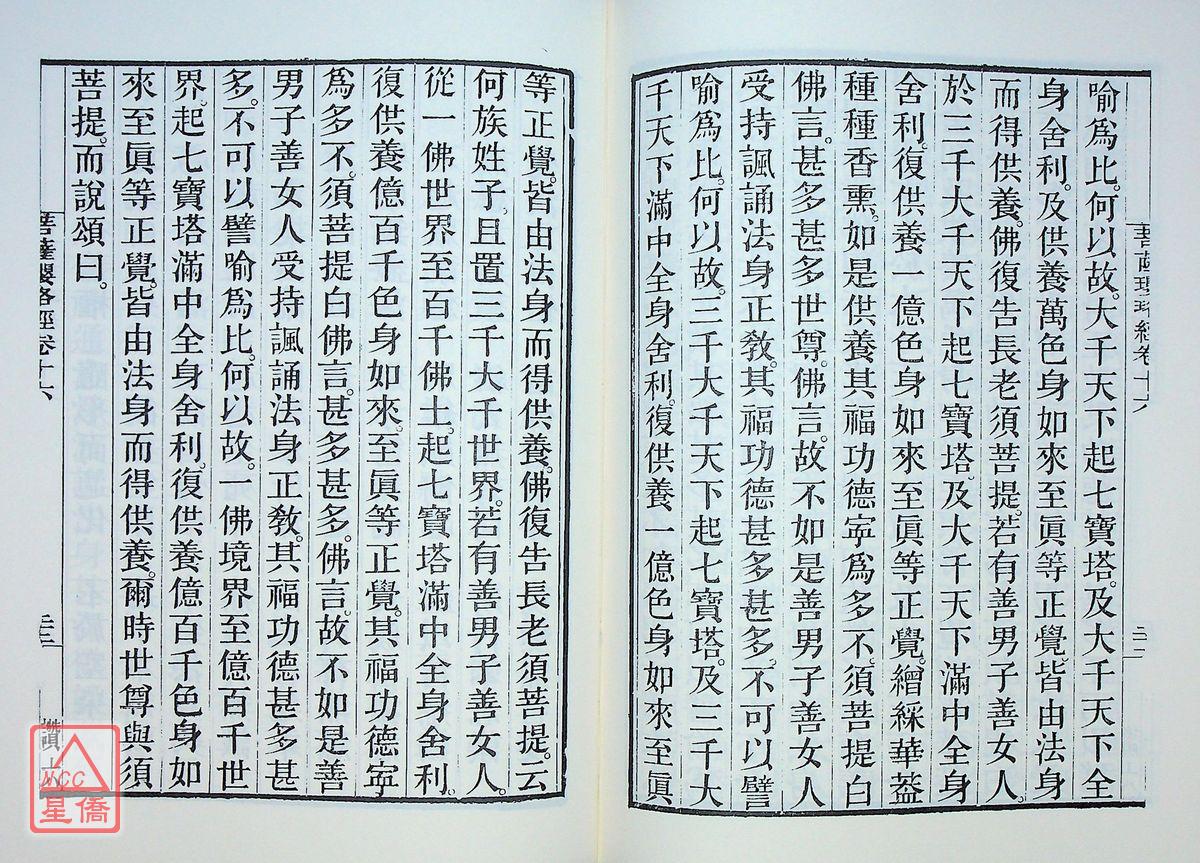 菩薩瓔珞經卷十六
喻爲比。何以故。大千天下起七寶塔。及大千天下全
身舍利。及供養萬色身如來至眞等正覺。皆由法身
而得供養。佛復吿長老須菩提。若有善男子善女人。
於三千大千天下起七寶塔。及大千天下滿中全身
舍利。復供養一億色身如來至眞等正覺。繒綵華葢
種種香熏。如是供養其福功德寧爲多不。須菩提白
佛言。甚多甚多世尊。佛言。故不如是善男子善女人
受持諷誦法身正敎。其福功德甚多甚多。不可以譬
喻爲比。何以故。三千大千天下起七寶塔。及三千大
千天下滿中全身舍利。復供養一億色身如來至眞
等正覺。皆由法身而得供養。佛復吿長老須菩提。云
何族姓子。且置三千大千世界。若有善男子善女人。
從一佛世界至百千佛土。起七寶塔滿中全身舍利。
復供養億百千色身如來。至眞等正覺。其福功德寧
爲多不。須菩提白佛言。甚多甚多。佛言。故不如是善
男子善女人受持諷誦法身正敎。其福功德甚多甚
多。不可以譬喻爲比。何以故。一佛境界至億百千世
界。起七寶塔滿中全身舍利。復供養億百千色身如
來至眞等正覺。皆由法身而得供養。爾時世尊與須
菩提。而說頌曰。
菩薩瓔珞經卷十六
NCC
星僑